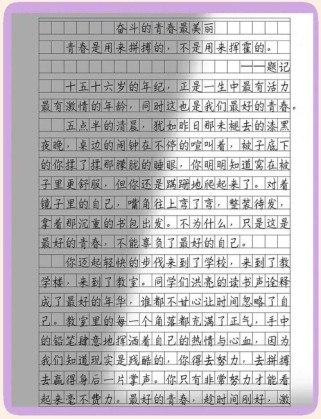 奋斗的青春最美丽
青春是用来拼搏的，不是用来挥霍的。
——题记
十五十六岁的年纪，正是一生中最有活力
最有激情的年龄，同时这也是我们最好的青春。
五点半的清晨，犹如昨日那未褪去的漆黑
夜晚，桌边的闹钟在不停的喧叫着，被子底下
的你揉了揉那朦胧的睡眼，你明明知道窝在被
子里更舒服，但你还是蹒跚地爬起来了。对着
镜子里的自己，嘴角往上弯了弯，整装待发，
拿着那沉重的书包出发。不为什么，只是这是
最好的青春，不能辜负了最好的自己。
你迈起轻快的步伐来到了学校，来到了教
学楼，来到了教室。同学们洪亮的读书声诠释
成了最好的年华，谁都不甘心让时间忽略了自
己。教室里的每一个角落都充满了正气，手中
的铅笔肆意地挥洒着自己的热情与心血，因为
我们知道现实是残酷的，你得去努力，去拼搏
去赢得身后一片掌声。你只有非常努力才能看
起来毫不费力。最好的青春，趁时间刚好，激